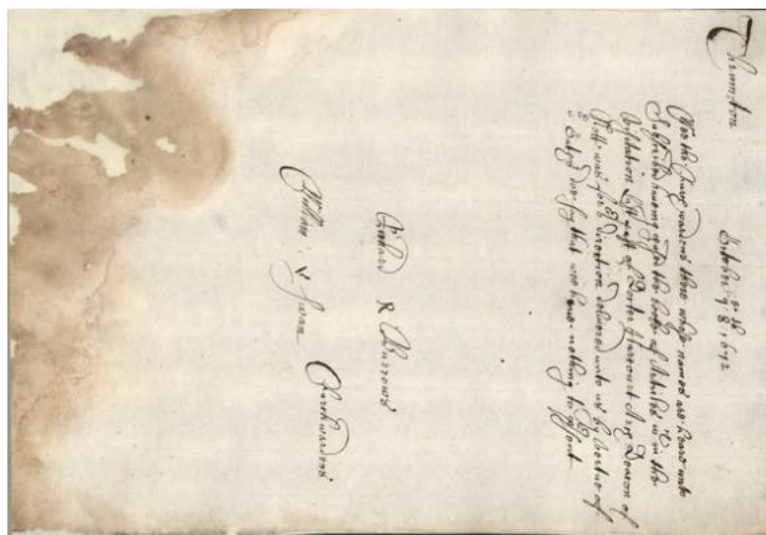 Thrumpton
October 8th 1692
Wee the Churchwardens there whose names are heare unto
Subscribed haveing the booke of Articles in the
Visitation last past of Docter Harcourt Arch Deacon of
Nott: was for direction delivered unto us by vertue of
o Oathes doe say that wee have nothing to psent
Richard R Burrows
William V Swan
Churchwardens